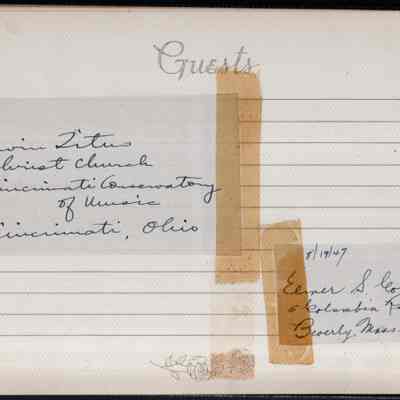 Guests
win Titus
hrist Church
incinnati Conservatory
of Music
Cincinnati, Ohio
8/19/47
Elmer S. Co
6 Columbia R
Beverly Mass.